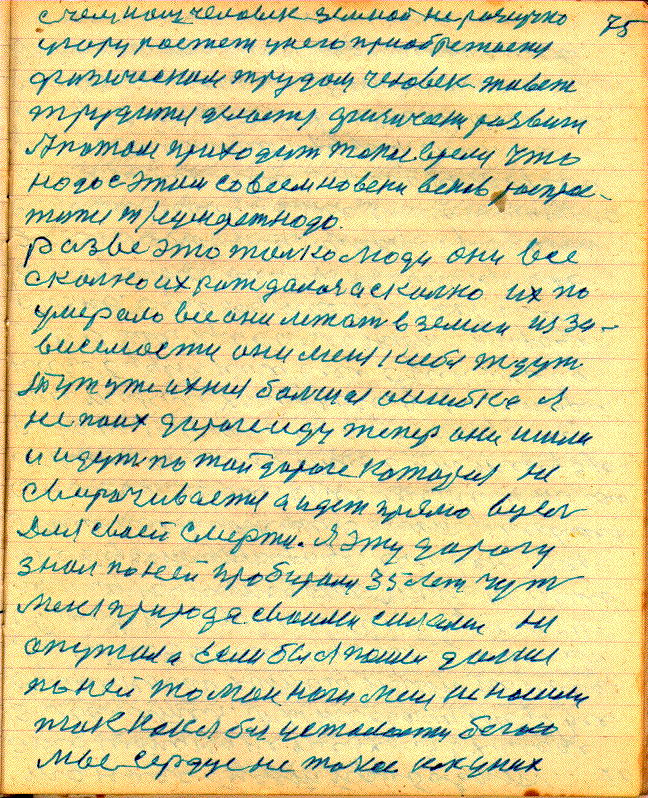 с чем наш человек земной неразлучно
75
угару ростет у него приобретаены
физическим трудом человек живет
трудится делается физически развит
А потом приходит такое время что
надо с этим со всем на веки веков роспрос-
тится
надо.
разве это только люди они все
сколко их рождалося а сколко их по
умерало все они лежат в земли из за-
висемости они меня к себя ждут
Тут уже ихния болшая ошибка я
не по их дороге иду теперь они шли
и идут по той дороге которая не
сворачивается а идет прямо
Для своей смерти. Я эту дорогу
знаю по ней пробирался 35 лет чуть
меня природа своими силами не
опутала Если бы я пошел далше
по ней то мои ноги меня не носили
так как я бы
мое сердце не такое как у них